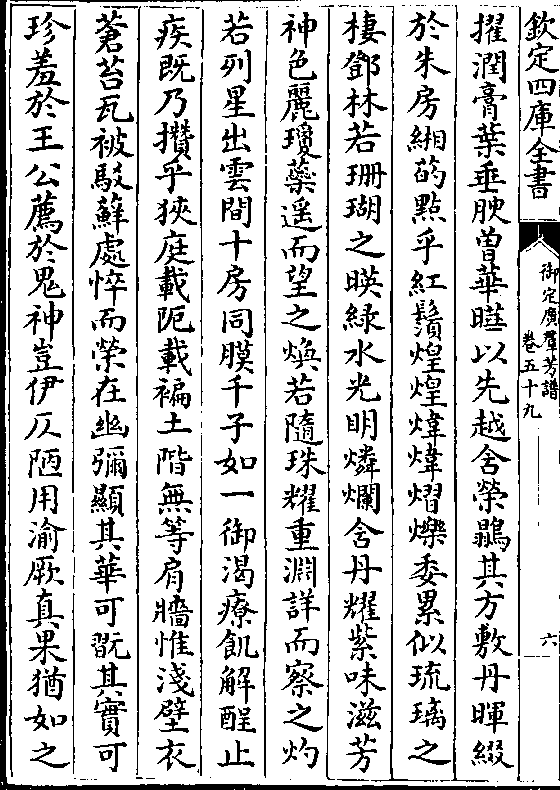 欽定四庫全書
御定廣羣芳譜
卷五十九
六
擢潤膏葉垂腴曽華曀以先越含榮鶡其方敷丹暉綴
於朱房緗菂點乎紅鬚煌煌煒煒熠爍委累似琉璃之
棲鄧林若珊瑚之暎綠水光明燐爛含丹耀紫味滋芳
神色麗瓊蘂遥而望之煥若隨珠耀重淵詳而察之灼
若列星出雲間十房同膜千子如一御渴療飢解酲止
疾既乃攢乎狹庭載阨載褊土階無等肩牆惟淺壁衣
蒼苔瓦被駁蘚處悴而榮在幽彌顯其華可翫其實可
珍羞於王公薦於鬼神豈伊仄陋用渝厥真果猶如之